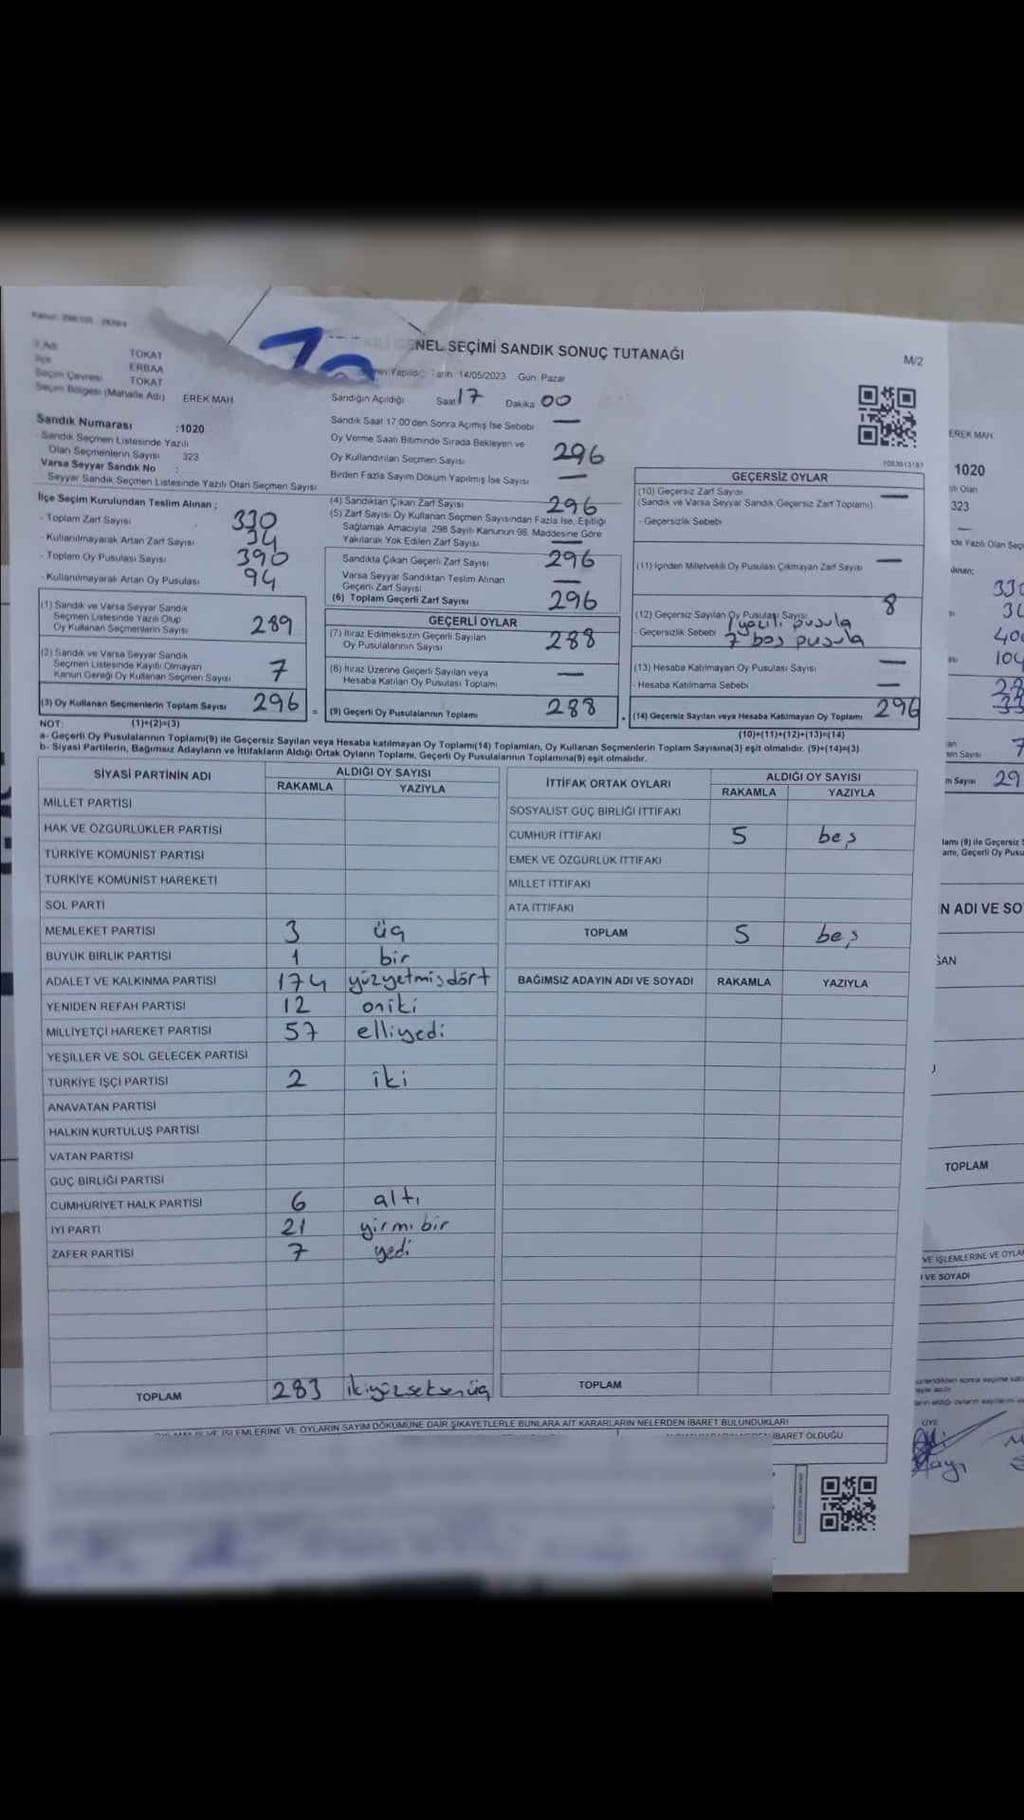 NEL SEÇİMİ SANDIK SONUÇ TUTANAĞI
M/2
Tarih 14/05/2023 Gün: Pazar
TOKAT
ERBAA
Seçim Çevresi TOKAT
Seçim Bölgesi (Mahalle Adı) EREK MAH
Sandık Numarası :1020
Sandık Seçmen Listesinde Yazılı
Olan Seçmenlerin Sayısı 323
Varsa Seyyar Sandık No :
Seyyar Sandık Seçmen Listesinde Yazılı Olan Seçmen Sayısı
Sandığın Açıldığı Saat 17 Dakika 00
Sandık Saat 17:00'den Sonra Açılmış İse Sebebi —
Oy Verme Saati Bitiminde Sırada Bekleyen ve
Oy Kullandırılan Seçmen Sayısı 296
Birden Fazla Sayım Döküm Yapılmış İse Sayısı —
İlçe Seçim Kurulundan Teslim Alınan ;
- Toplam Zarf Sayısı 330
- Kullanılmayarak Artan Zarf Sayısı 34
- Toplam Oy Pusulası Sayısı 390
- Kullanılmayarak Artan Oy Pusulası 94
(1) Sandık ve Varsa Seyyar Sandık
Seçmen Listesinde Yazılı Olup
Oy Kullanan Seçmenlerin Sayısı 289
(2) Sandık ve Varsa Seyyar Sandık
Seçmen Listesinde Kayıtlı Olmayan
Kanun Gereği Oy Kullanan Seçmen Sayısı 7
(3) Oy Kullanan Seçmenlerin Toplam Sayısı 296
(4) Sandıktan Çıkan Zarf Sayısı 296
(5) Zarf Sayısı Oy Kullanan Seçmen Sayısından Fazla İse, Eşitliği
Sağlamak Amacıyla, 298 Sayılı Kanunun 98. Maddesine Göre
Yakılarak Yok Edilen Zarf Sayısı —
Sandıkta Çıkan Geçerli Zarf Sayısı 296
Varsa Seyyar Sandıktan Teslim Alınan
Geçerli Zarf Sayısı —
(6) Toplam Geçerli Zarf Sayısı 296
GEÇERLİ OYLAR
(7) İtiraz Edilmeksizin Geçerli Sayılan
Oy Pusulalarının Sayısı 288
(8) İtiraz Üzerine Geçerli Sayılan veya
Hesaba Katılan Oy Pusulası Toplamı —
= (9) Geçerli Oy Pusulalarının Toplamı 288
1083613187
GEÇERSİZ OYLAR
(10) Geçersiz Zarf Sayısı —
(Sandık ve Varsa Seyyar Sandık Geçersiz Zarf Toplamı)
- Geçersizlik Sebebi
(11) İçinden Milletvekili Oy Pusulası Çıkmayan Zarf Sayısı —
(12) Geçersiz Sayılan Oy Pusulası Sayısı 8
- Geçersizlik Sebebi 1 yazılı pusula
7 boş pusula
(13) Hesaba Katılmayan Oy Pusulası Sayısı —
- Hesaba Katılmama Sebebi —
(14) Geçersiz Sayılan veya Hesaba Katılmayan Oy Toplamı 296
NOT: (1)+(2)=(3)
(10)+(11)+(12)+(13)=(14)
a- Geçerli Oy Pusulalarının Toplamı(9) ile Geçersiz Sayılan veya Hesaba katılmayan Oy Toplamı(14) Toplamları, Oy Kullanan Seçmenlerin Toplam Sayısına(3) eşit olmalıdır. (9)+(14)=(3)
b- Siyasi Partilerin, Bağımsız Adayların ve İttifakların Aldığı Ortak Oyların Toplamı, Geçerli Oy Pusulalarının Toplamına(9) eşit olmalıdır.
SİYASİ PARTİNİN ADI ALDIĞI OY SAYISI
RAKAMLA YAZIYLA
MİLLET PARTİSİ
HAK VE ÖZGÜRLÜKLER PARTİSİ
TÜRKİYE KOMÜNİST PARTİSİ
TÜRKİYE KOMÜNİST HAREKETİ
SOL PARTİ
MEMLEKET PARTİSİ 3 üç
BÜYÜK BİRLİK PARTİSİ 1 bir
ADALET VE KALKINMA PARTİSİ 174 yüzyetmişdört
YENİDEN REFAH PARTİSİ 12 oniki
MİLLİYETÇİ HAREKET PARTİSİ 57 elliyedi
YEŞİLLER VE SOL GELECEK PARTİSİ
TÜRKİYE İŞÇİ PARTİSİ 2 iki
ANAVATAN PARTİSİ
HALKIN KURTULUŞ PARTİSİ
VATAN PARTİSİ
GÜÇ BİRLİĞİ PARTİSİ
CUMHURİYET HALK PARTİSİ 6 altı
İYİ PARTİ 21 yirmi bir
ZAFER PARTİSİ 7 yedi
TOPLAM 283 ikiyüzseksenüç
İTTİFAK ORTAK OYLARI ALDIĞI OY SAYISI
RAKAMLA YAZIYLA
SOSYALİST GÜÇ BİRLİĞİ İTTİFAKI
CUMHUR İTTİFAKI 5 beş
EMEK VE ÖZGÜRLÜK İTTİFAKI
MİLLET İTTİFAKI
ATA İTTİFAKI
TOPLAM 5 beş
BAĞIMSIZ ADAYIN ADI VE SOYADI RAKAMLA YAZIYLA
TOPLAM
VE İŞLEMLERİNE VE OYLARIN SAYIM DÖKÜMÜNE DAİR ŞİKAYETLERLE BUNLARA AİT KARARLARIN NELERDEN İBARET BULUNDUKLARI
İBARET OLDUĞU
EREK MAH
1020
323
—
330
400
104
N ADI VE SO
TOPLAM
VE İŞLEMLERİNE VE OYLA
VE SOYADI
ÜYE